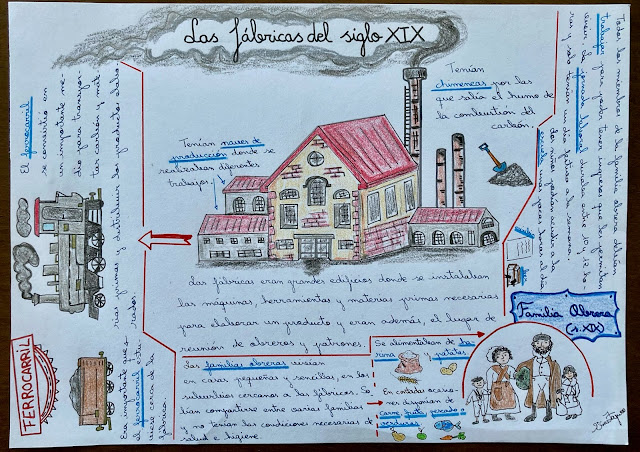 Las fábricas del siglo XIX
Tenían
chimeneas por las
que salía el humo de
la combustión del
carbón.
Tenían naves de
producción donde se
realizaban diferentes
trabajos.
Las fábricas eran grandes edificios donde se instalaban
las máquinas, herramientas y materias primas necesarias
para elaborar un producto y eran además, el lugar de
reunión de obreros y patrones.
El ferrocarril
se convirtió en
un importante me-
dio para transpor-
tar carbón y mate-
rias primas y distribuir los productos elabo-
rados.
Era importante que
el ferrocarril estu-
viese cerca de la
fábrica
FERROCARRIL
Las familias obreras vivían
en casas pequeñas y sencillas, en los
suburbios cercanos a las fábricas. So
lían compartirse entre varias familias
y no tenían las condiciones necesarias de
salud e higiene
Se alimentaban de ha
rina y patatas.
En contadas ocasio-
nes disponían de
carne, fruta, pescado o
verduras
Familia Obrera
(s. XIX)
Todos los miembros de la familia obrera debían
trabajar para poder tener ingresos que les permitan
La jornada laboral duraba entre 10 y 12 ho-
ras y solo tenían un día festivo a la semana.
niños podían acudir a la
escuela unas pocas horas al día